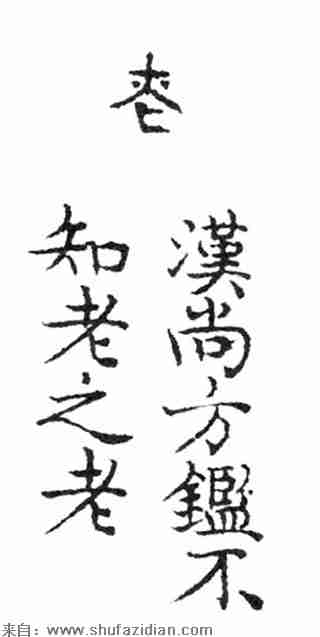 漢尚方鑑不
知老之老
来自：www.shufazidian.com